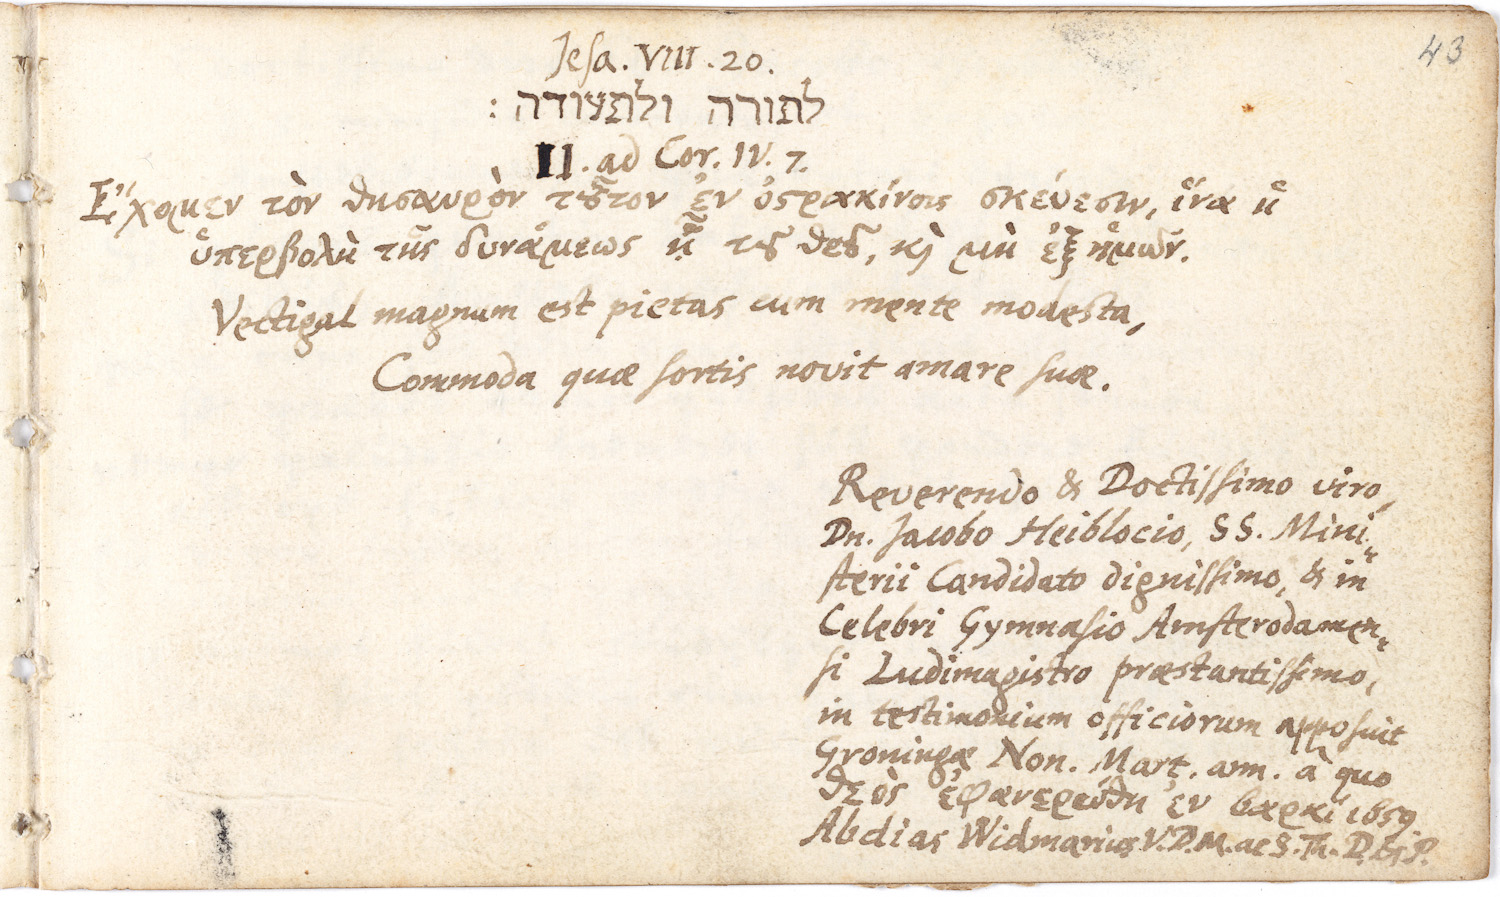 43
Jesa. VIII. 20.
לתורה ולתעודה :
II. ad Cor. IV. 7.
Ἔχομεν τὸν θησαυρὸν τȣ͂τον ἐν ὀϛρακίνοις σκέυεσιν, ἵνα ἡ
ὑπερβολὴ τῆς δυνάμεως ᾖ τȣ͂ θεȣ͂, κὶ μὴ ἐξ ἡμῶν.
Vectigal magnum est pietas cum mente modesta,
Commoda quæ sortis novit amare suæ.
Reverendo & Doctissimo viro,
Dn. Jacobo Heiblocio, SS. Mini-
sterii Candidato dignissimo, & in
Celebri Gymnasio Amsterodamen-
si Ludimagistro præstantissimo,
in testimonium officiorum apposuit
Groningæ Non. Mart. ann. à quo
θεὸς ἐφανερώθη ἐν σαρκί 1659
Abdias Widmarius V.D.M. ac S. Th. D. & P.